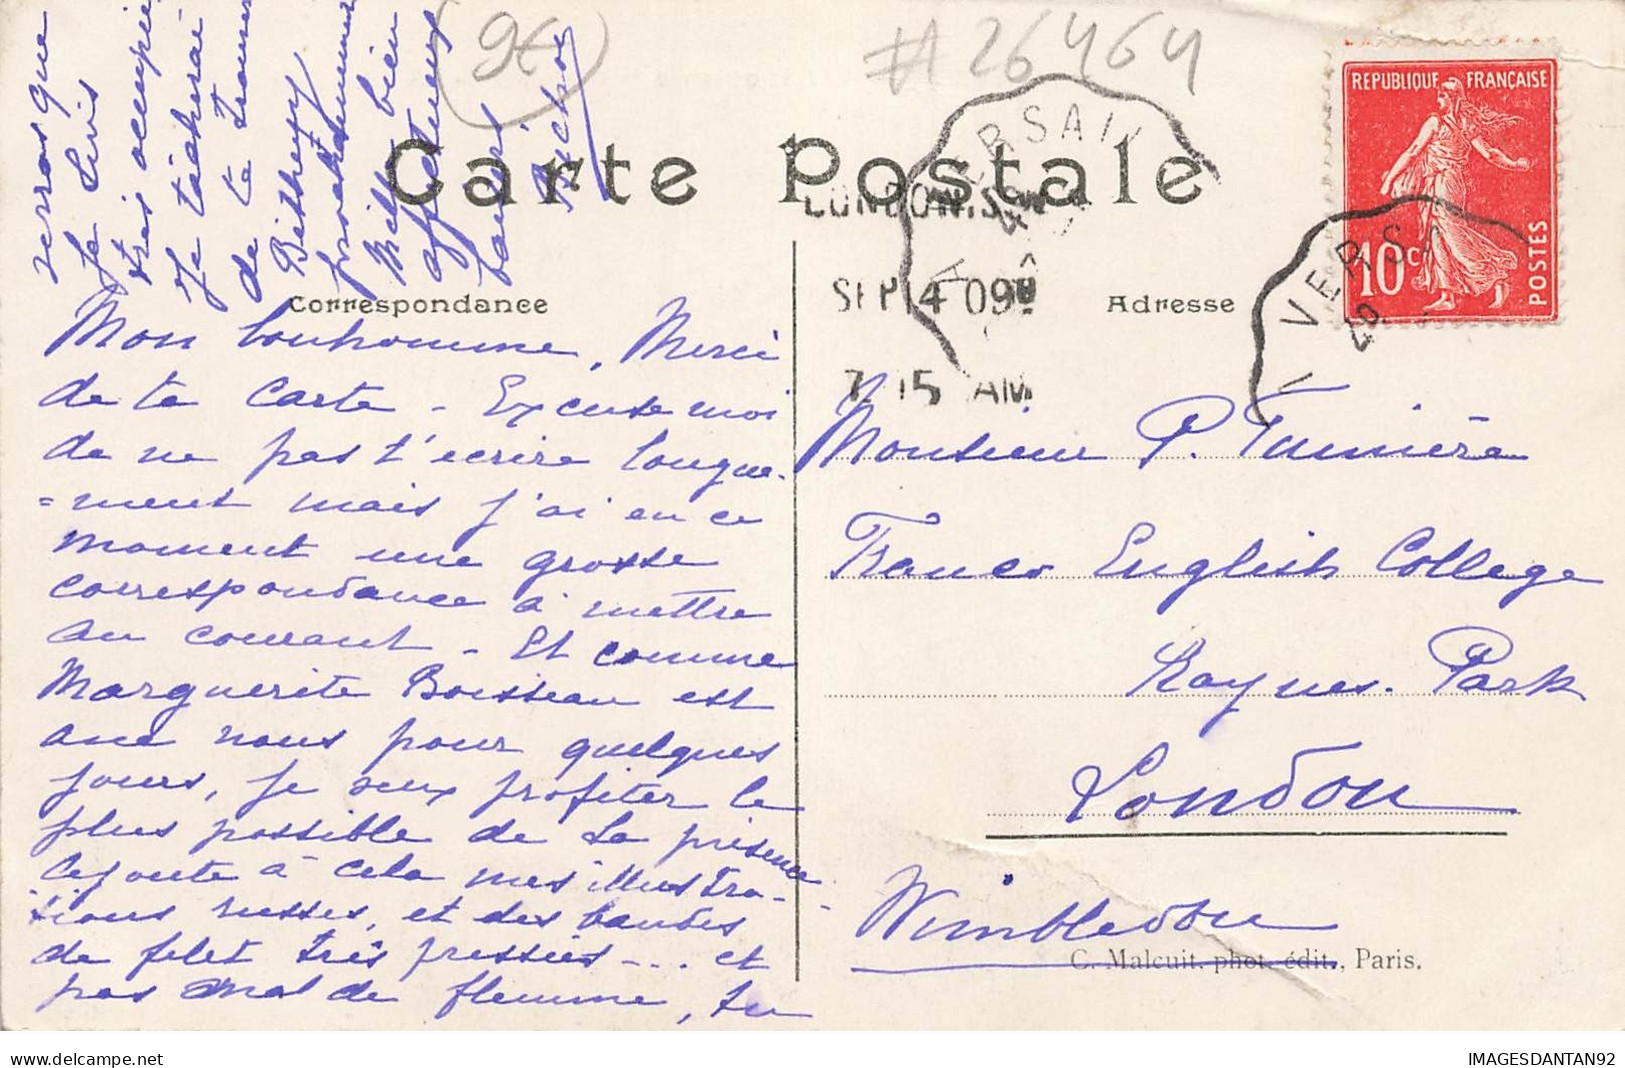 9€
# 26464
Carte Postale
Correspondance
Adresse
REPUBLIQUE FRANÇAISE
10c
POSTES
VERSAIL
LONDON.S.W
SEP 14 09
7.15 AM
VERSA
Mon bonhomme, Merci
de ta carte - Excuse moi
de ne pas t'ecrire longue-
=ment mais j'ai en ce
moment une grosse
correspondance à mettre
au courant - Et comme
Marguerite Boisseau est
avec nous pour quelques
jours, je veux profiter le
plus possible de sa présence
ajoute à cela mes illustra-
tions russes, et des bandes
de filet très pressées ... et
pas mal de flemme, tu
verras que
je suis
très occupée
Je tâcherai
de te
prochainement
Mille bien
affectueux
baisers
Monsieur P.
Franco English College
Raynes. Park
London
Wimbledon
C. Malcuit, phot. édit., Paris.
IMAGESDANTAN92